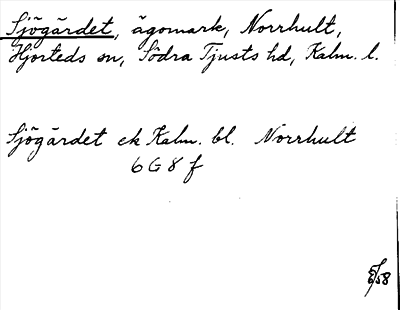 Sjögärdet, ägomark, Norrhult,
Hjorteds sn, Södra Tjusts hd, Kalm. l.
Sjögärdet ek Kalm. bl. Norrhult
6 G 8 f